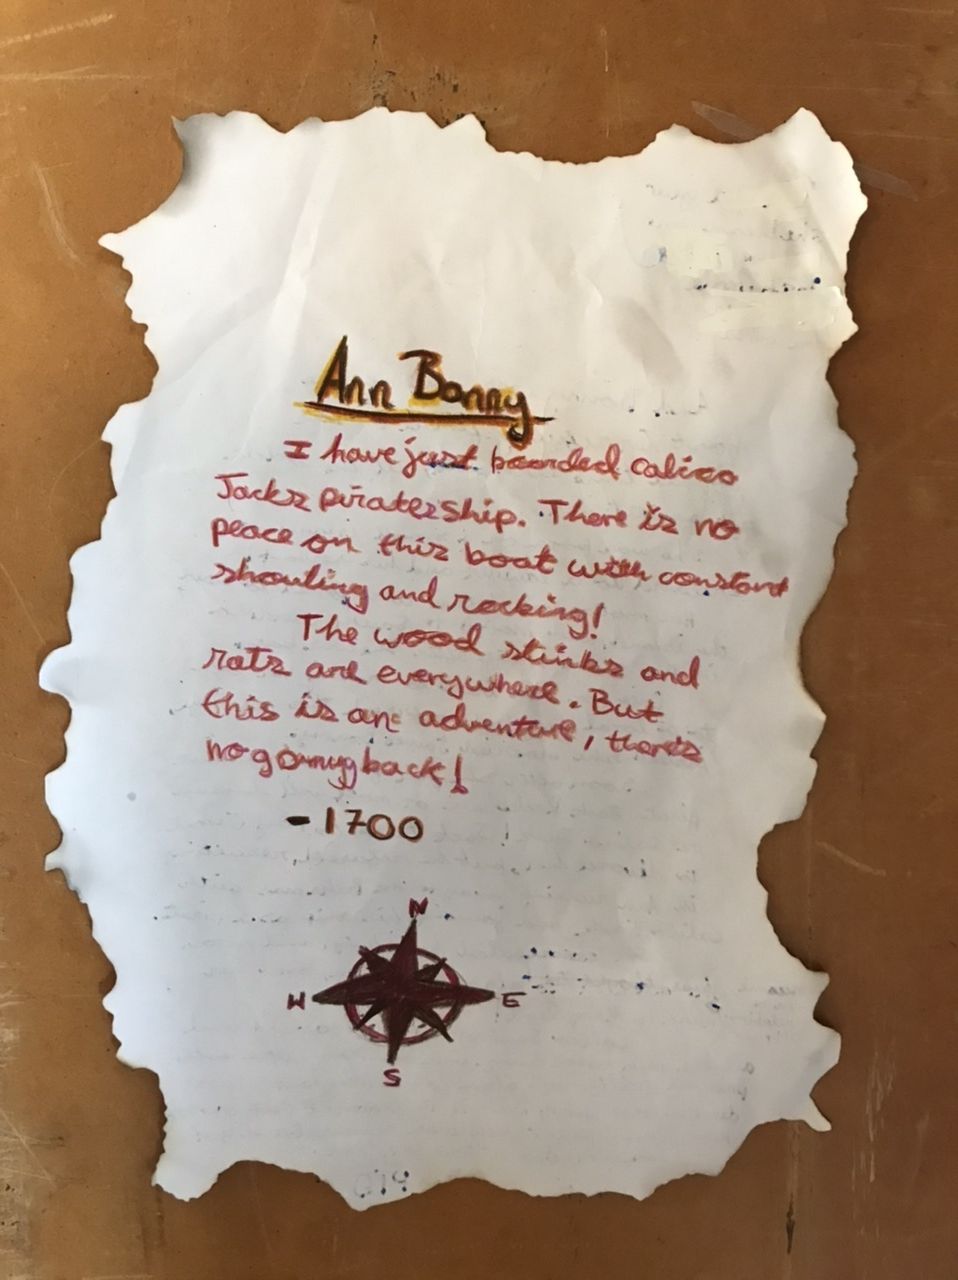 Ann Bonny
I have just boarded calico
Jacks pirateship. There is no
peace on this boat with constant
shouting and rocking!
The wood stinks and
rats are everywhere. But
this is an adventure, there's
no going back!
- 1700
N
W E
S